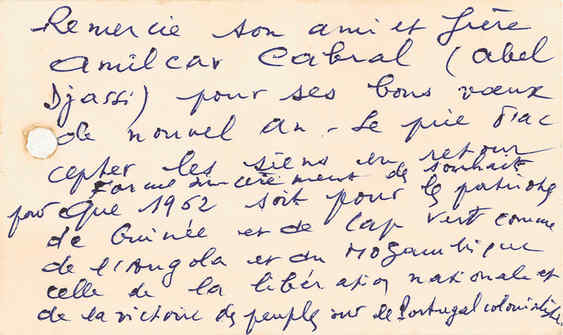 Remercie son ami et frère
Amilcar Cabral (Abel
Djassi) pour ses bons vœux
de nouvel An - Le prie d'ac
cepter les siens en retour
forme sincèrement des souhaits
pour que 1962 soit pour les patriotes
de Guinée et de Cap Vert comme
de l'Angola et du Mozambique
celle de la libération nationale et
de la victoire des peuples sur le Portugal colonialiste